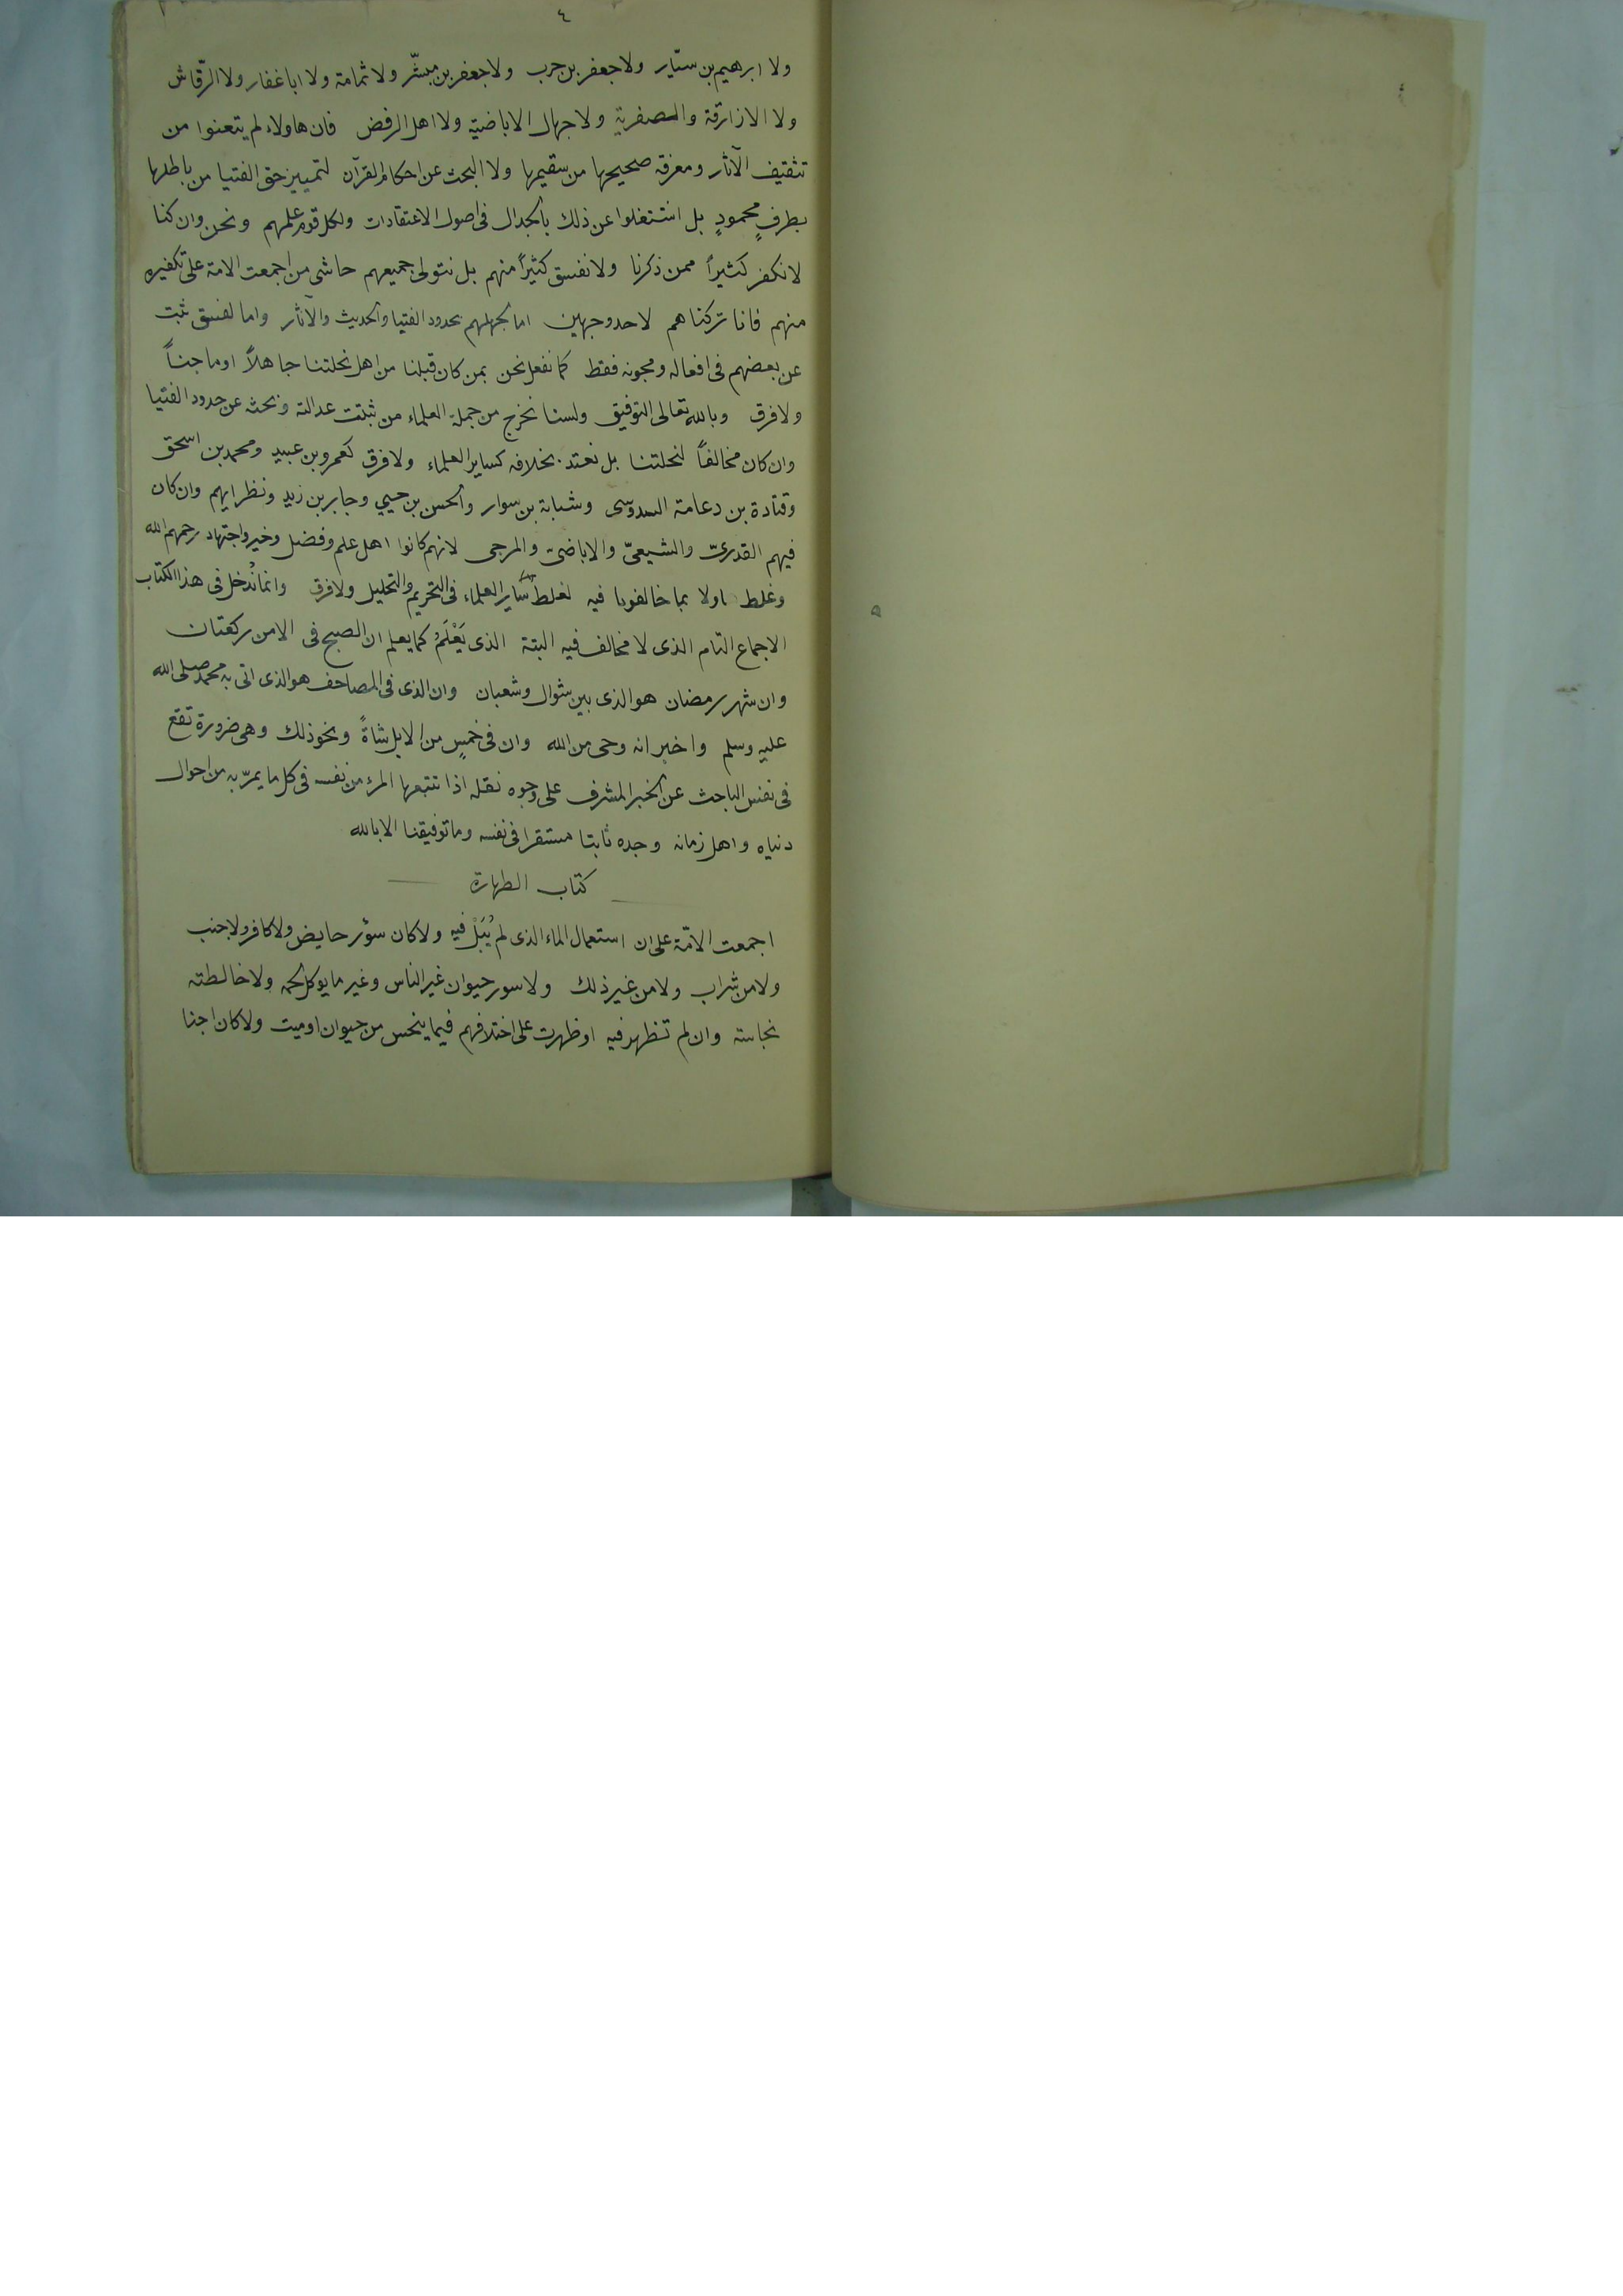 ٤
ولا ابرهيم بن سيّار ولا جعفر بن حرب ولا جعفر بن مبشّر ولا ثمامة ولا ابا غفار ولا الرّقاش
ولا الازارقة والصفرية ولا جهال الاباضيّة ولا اهل الرفض فان هاولاء لم يتعنوا من
تثقيف الآثار ومعرفة صحيحها من سقيمها ولا البحث عن احكام القرآن لتمييز حق الفتيا من باطلها
بطرفٍ محمودٍ بل اشتغلوا عن ذلك بالجدال فى اصول الاعتقادات ولكل قوم علمهم ونحن وان كنا
لا نكفر كثيراً ممن ذكرنا ولا نفسق كثيراً منهم بل نتولى جميعهم حاشى من اجمعت الامة على تكفيره
منهم فانا تركناهم لاحد وجهين اما لجهلهم بحدود الفتيا والحديث والآثار واما لفسق ثبت
عن بعضهم فى افعاله ومجونه فقط كما نفعل نحن بمن كان قبلنا من اهل نحلتنا جاهلاً او ماجناً
ولا فرق وبالله تعالى التوفيق ولسنا نخرج من جملة العلماء من ثبتت عدالته وبحثه عن حدود الفتيا
وان كان مخالفاً لنحلتنا بل نعتد بخلافه كساير العلماء ولا فرق كعمرو بن عبيد ومحمد بن اسحق
وقتادة بن دعامة السدوسى وشبابة بن سوار والحسن بن حيي وجابر بن زيد ونظرايهم وان كان
فيهم القدرىّ والشيعىّ والاباضىّ والمرجى لانهم كانوا اهل علم وفضل وخير واجتهاد رحمهم الله
وغلط اولا بما خالفونا فيه لغلط ساير العلماء فى التحريم والتحليل ولا فرق وانما نُدخل فى هذا الكتاب
الاجماع التام الذى لا مخالف فيه البتة الذى يَعْلَمُ كما يعلم ان الصبح فى الامن ركعتان
وان شهر رمضان هو الذى بين شوال وشعبان وان الذى فى المصاحف هو الذى اتى به محمد صلى الله
عليه وسلم واخبر انه وحى من الله وان فى خمسٍ من الابل شاةً ونحو ذلك وهى ضرورة تقع
فى نفس الباحث عن الخبر المشرف على وجوه نقله اذا تتبعها المرء من نفسه فى كل ما يمرّ به من احوال
دنياه واهل زمانه وجده ثابتا مستقرا فى نفسه وما توفيقنا الا بالله
كتاب الطهارة
اجمعت الامّة على ان استعمال الماء الذى لم يُبَلْ فيه ولا كان سؤر حايض ولا كافر ولا جنب
ولا من شراب ولا من غير ذلك ولا سور حيوان غير الناس وغير ما يوكل لحمه ولا خالطته
نجاسة وان لم تظهر فيه او ظهرت على اختلافهم فيما ينجس من حيوان او ميت ولا كان اجنا